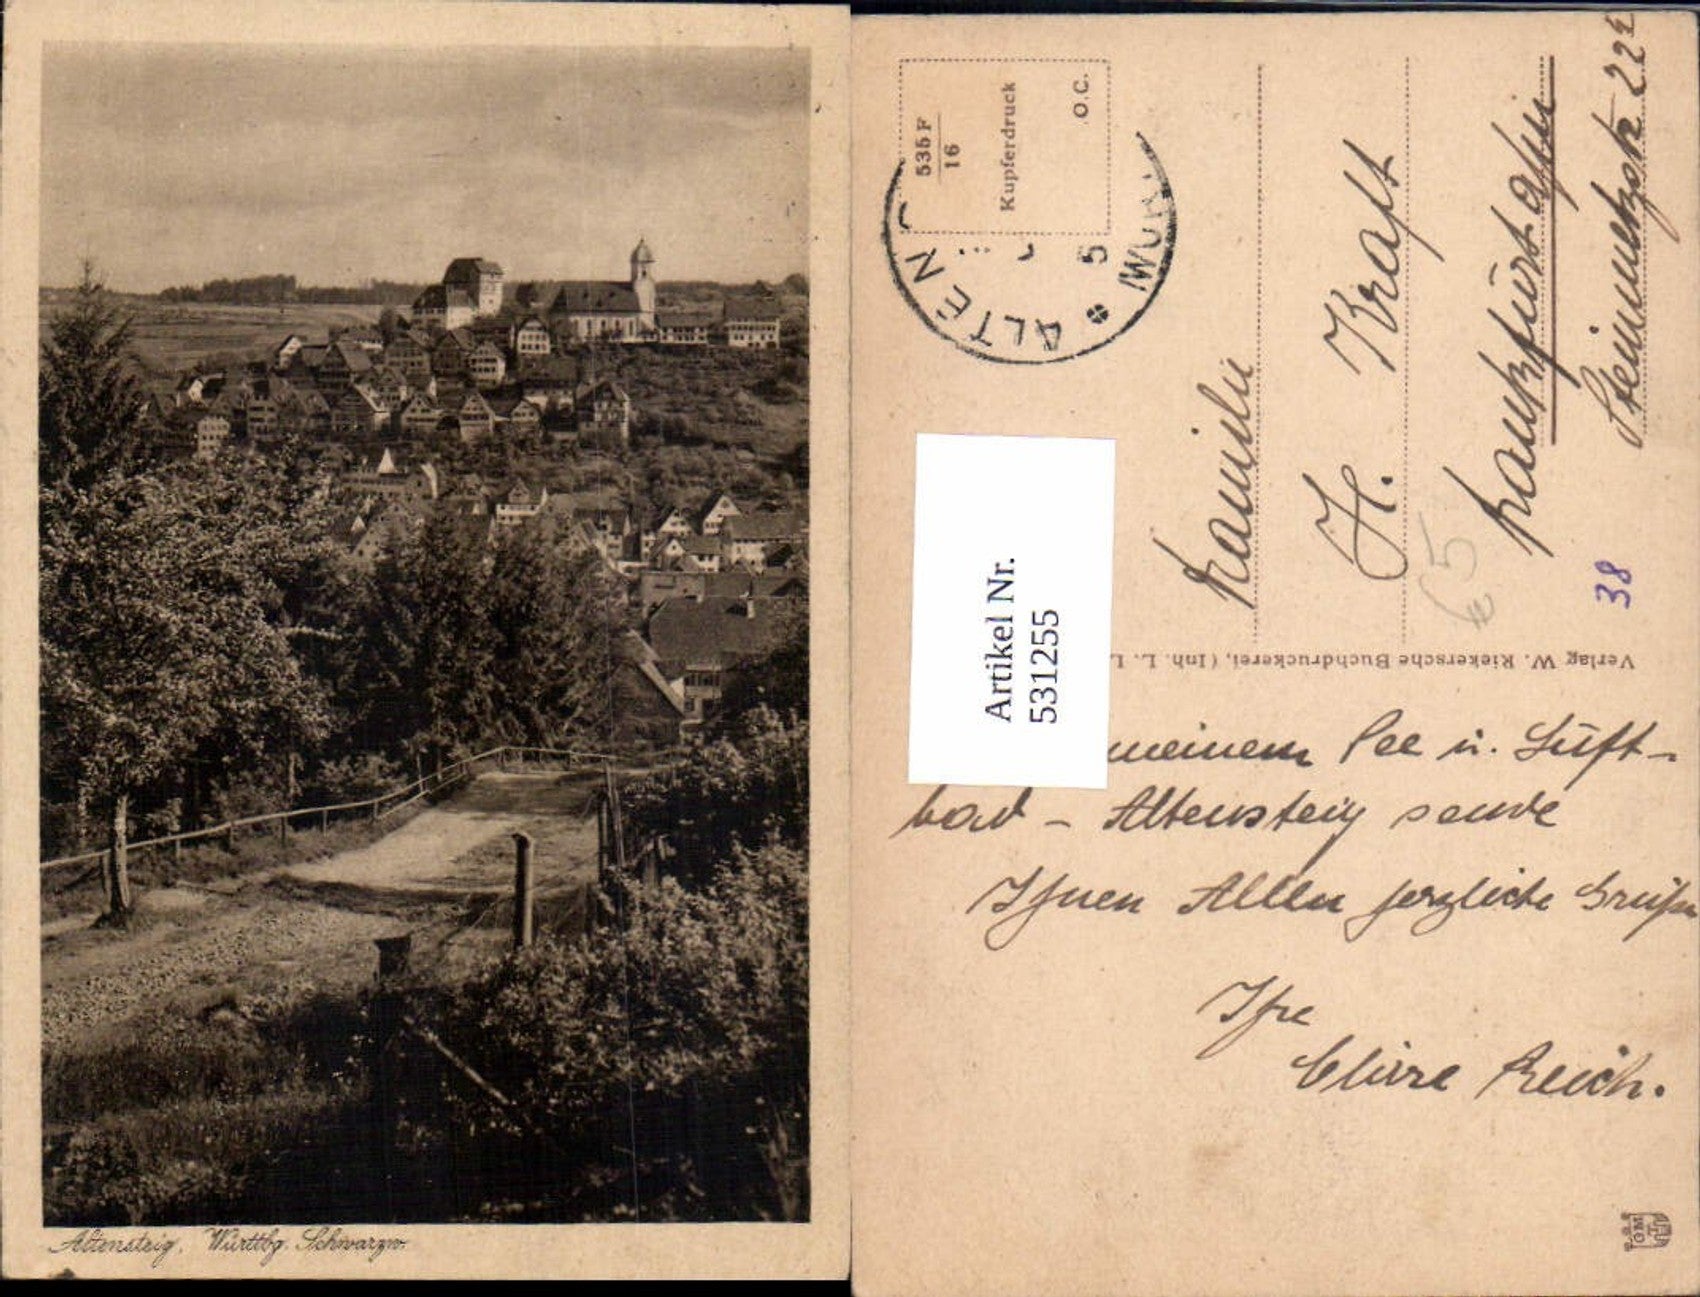 Altensteig, Württbg. Schwarzw.
535 F
16
Kupferdruck
O.C.
ALTEN
WÜR
5
Artikel Nr.
531255
Familie
H. Kraft
Frankfurt a/M
€5
38
Verlag W. Riekersche Buchdruckerei, (Inh. L. L
meinem See u. Luft-
bad - Altensteig sende
Ihnen Allen herzliche Grüße
Ihre
Reich.